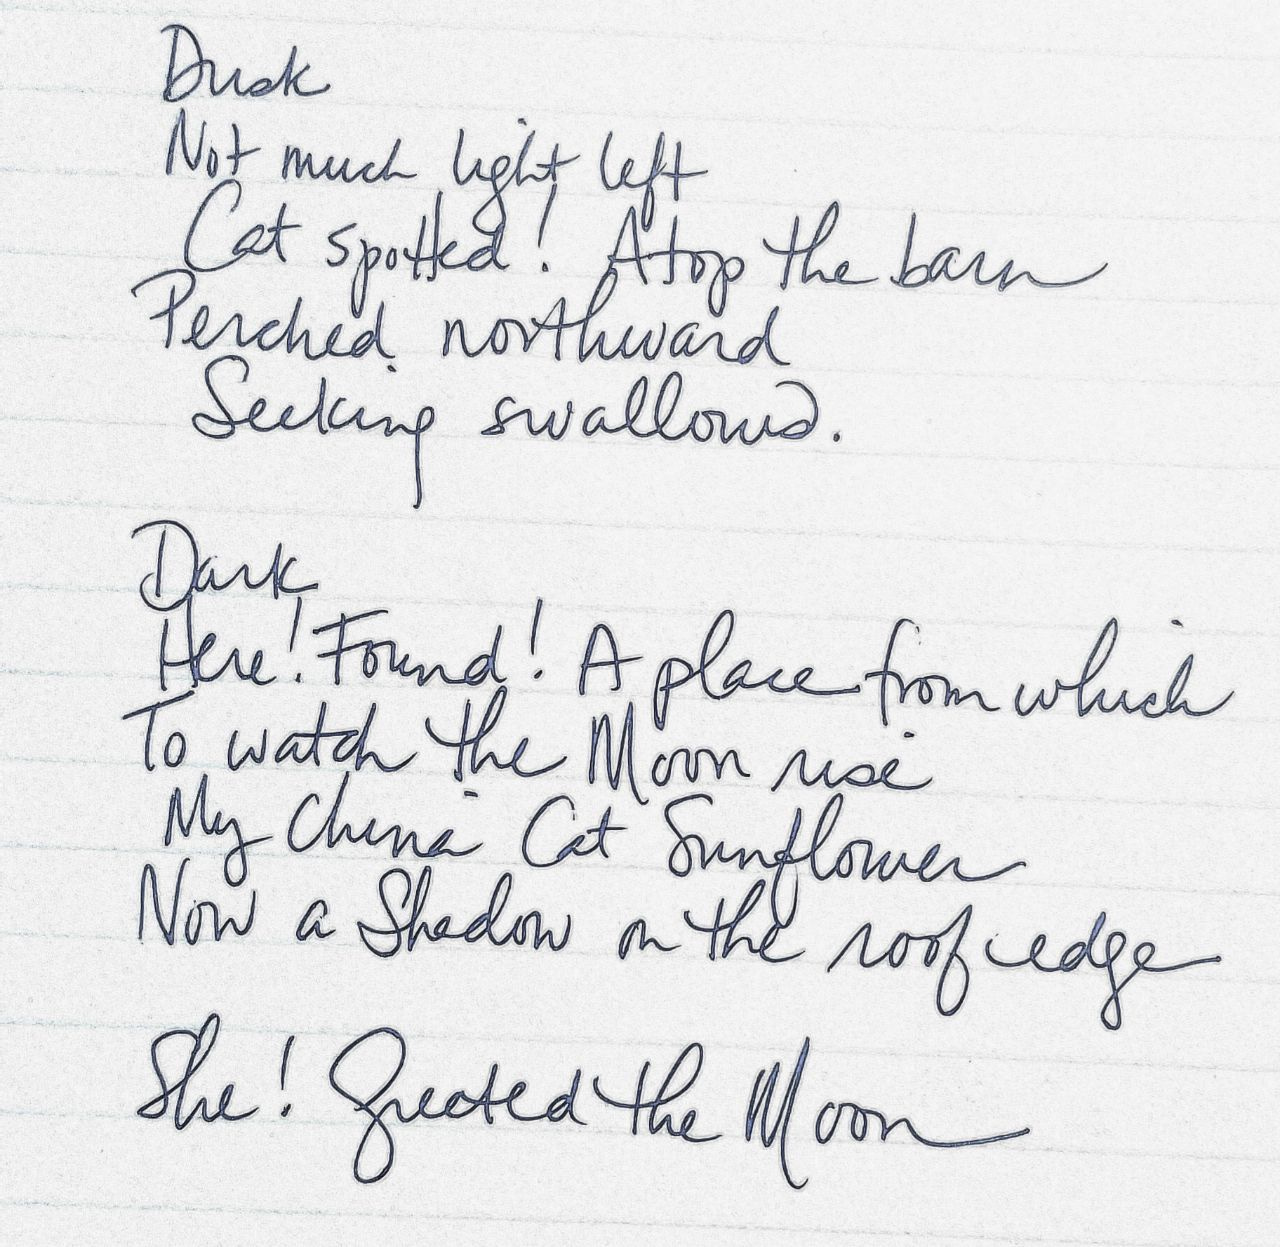 Dusk
Not much light left
Cat spotted! Atop the barn
Perched northward
Seeking swallows.
Dark
Here! Found! A place from which
To watch the Moon rise
My China Cat Sunflower
Now a Shadow on the roof edge
She! Greeted the Moon